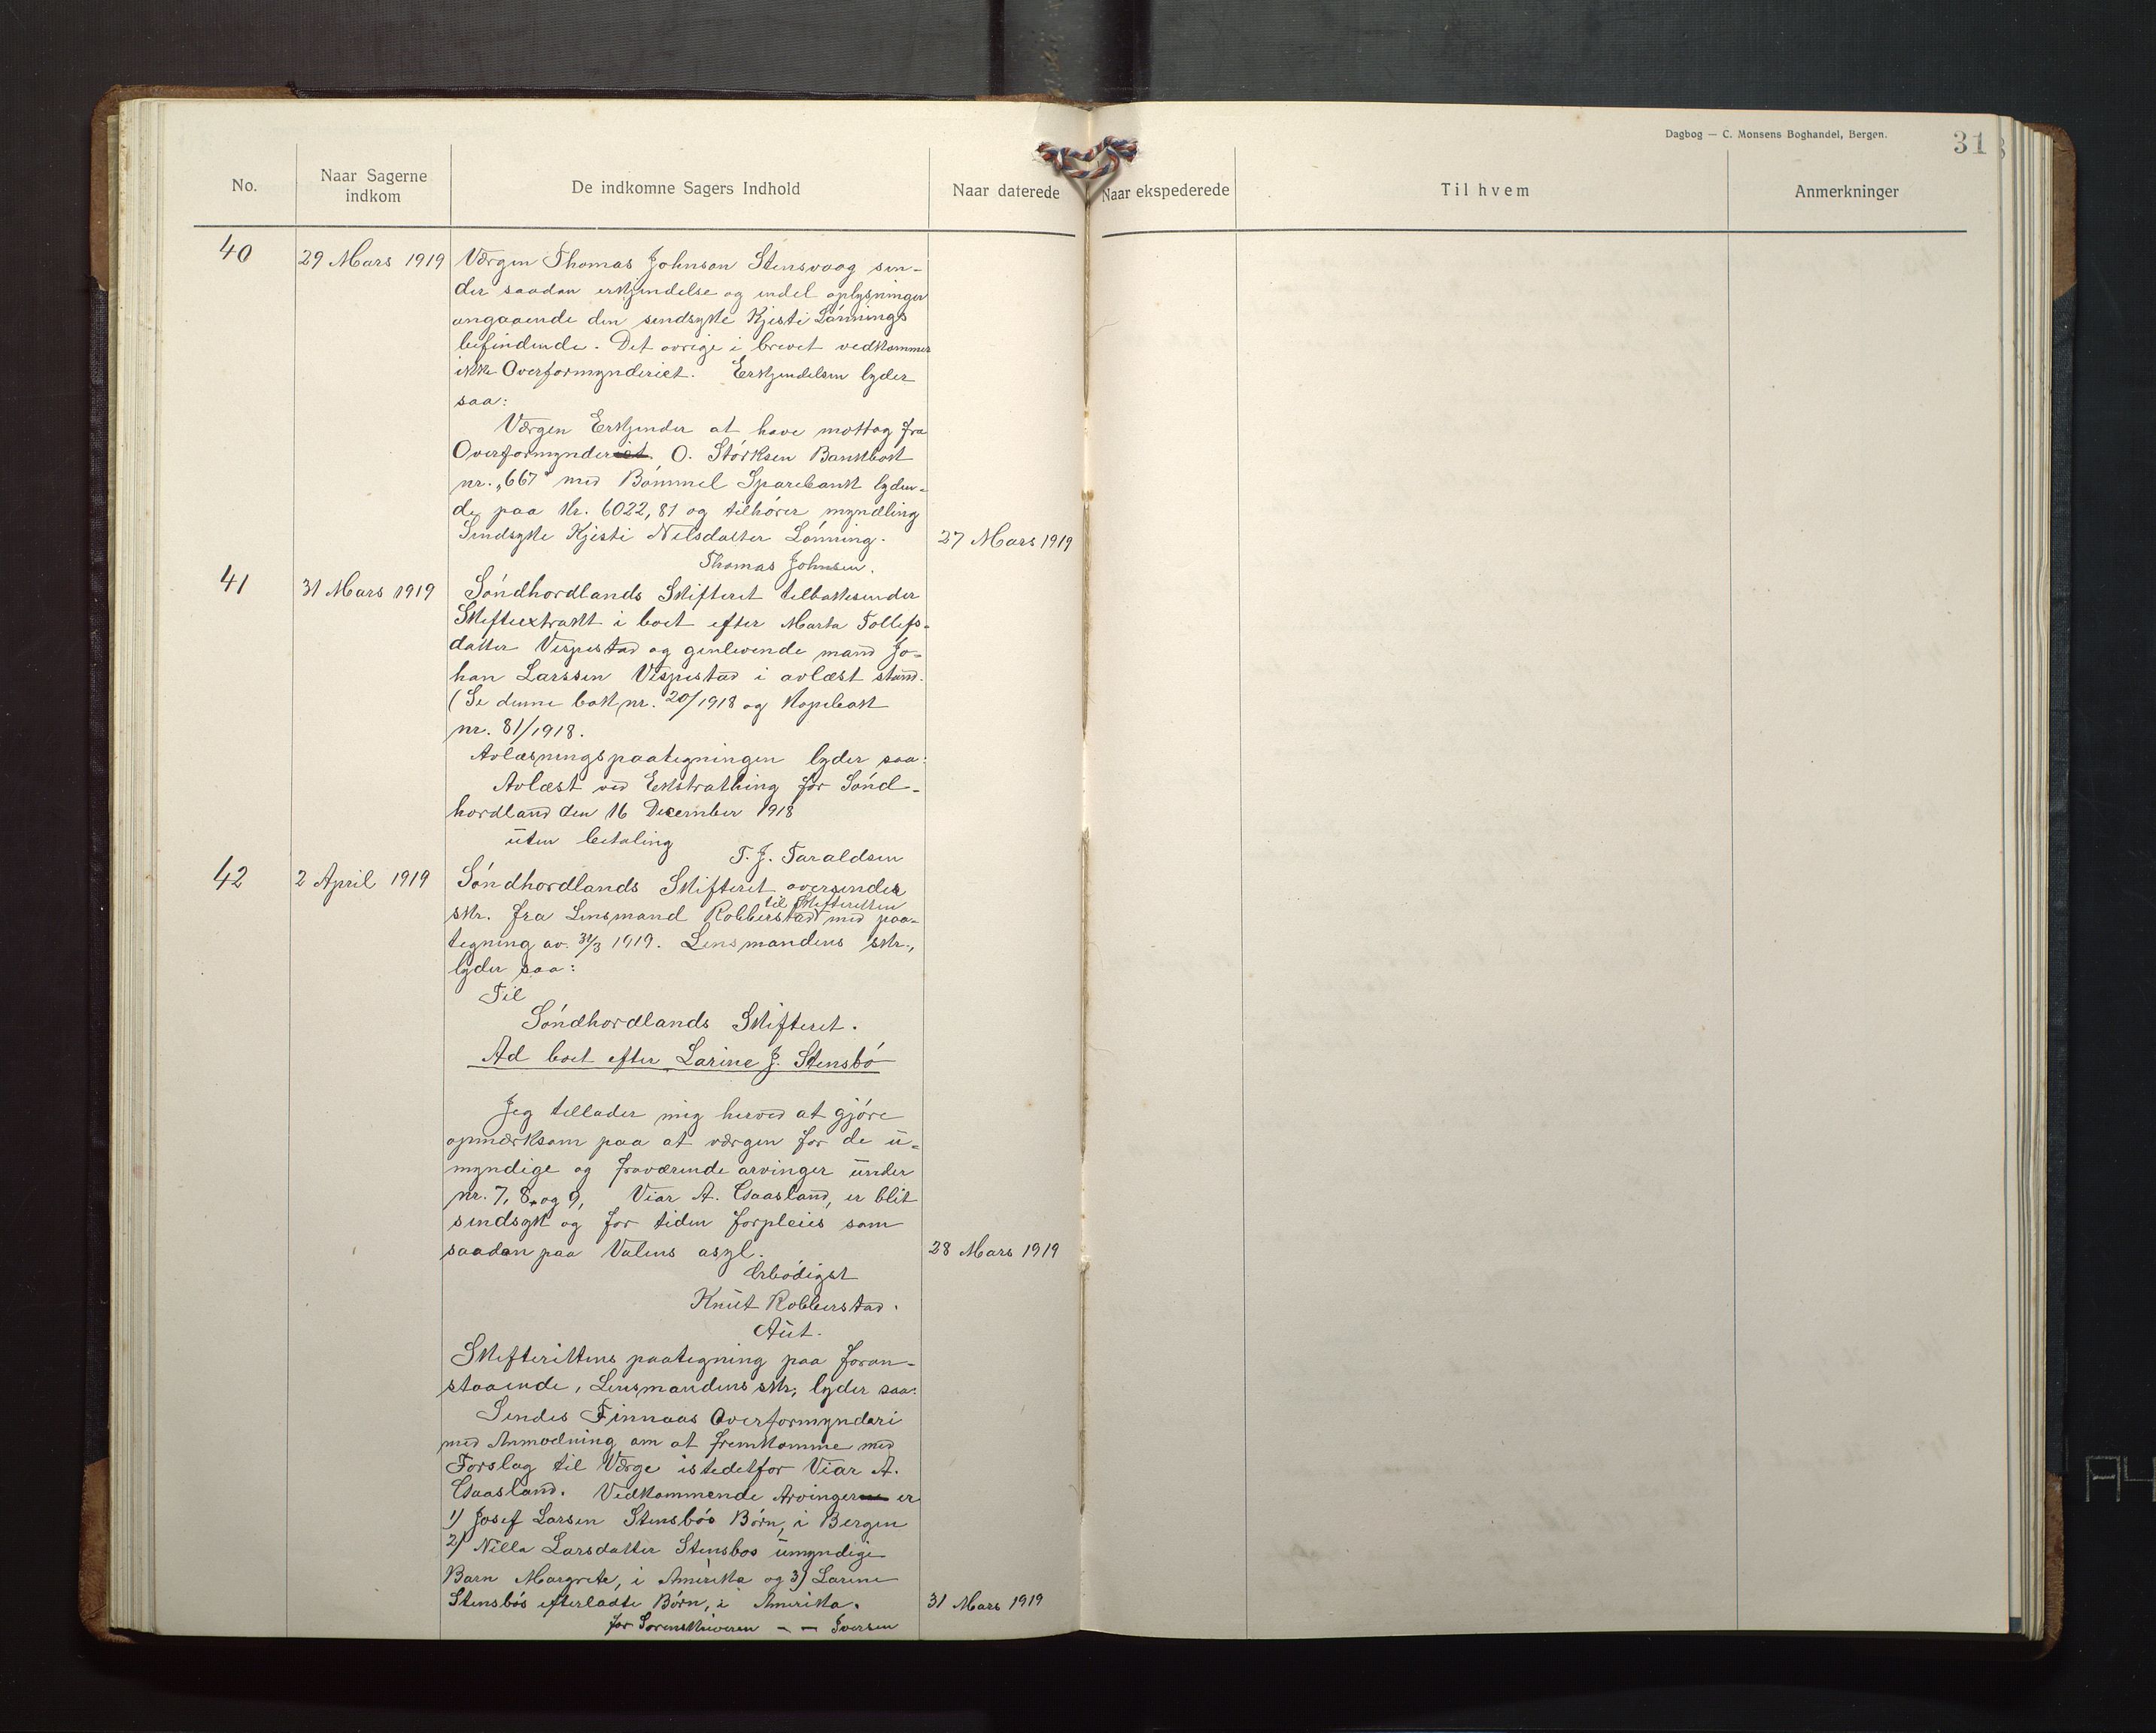 Dagbog — C. Monsens Boghandel, Bergen.
31
No.
Naar Sagerne indkom
De indkomne Sagers Indhold
Naar daterede
Naar ekspederede
Til hvem
Anmerkninger
40
29 Mars 1919
Værgen Thomas Johnson Stensvaag sen-
der saadan erkjendelse og endel oplysninger
angaaende den sindsyke Kjesti Lønnings
befindende. Det øvrige i brevet vedkommer
ikke Overformynderiet. Erkjendelsen lyder
saa:
Værgen Erkjender at have mottag fra
Overformynderiet. O. Størksen Bankbok
nr. „667" med Bømmel Sparebank lyden-
de paa kr. 6022,81 og tilhører myndling
Sindsyke Kjesti Nilsdatter Lønning.
27 Mars 1919
Thomas Johnsen.
41
31 Mars 1919
Søndhordlands Skifteret tilbakesender
Skifteextrakt i boet efter Marta Tollefs-
datter Vespestad og genlevende mand Jo-
han Larssen Vespestad i avlæst stand.
(Se denne bok nr. 20/1918 og Kopibok
nr. 81/1918.
Avlæsningspaategningen lyder saa:
Avlæst ved Ekstrathing for Sønd-
hordland den 16 December 1918
uten betaling
T. J. Taraldsen
42
2 April 1919
Søndhordlands Skifteret oversender
til Skifteretten
skr. fra Lensmand Robberstad med paa-
tegning av. 31/3 1919. Lensmandens skr.,
lyder saa:
Til
Søndhordlands Skifteret.
Ad boet efter Larine J. Stensbø
Jeg tillader mig herved at gjøre
opmerksom paa at værgen for de u-
myndige og fraværende arvinger under
nr. 7, 8, og 9, Viar A. Gaasland, er blit
sindsyk og for tiden forpleies som
saadan paa Valens asyl.
28 Mars 1919
Erbødigst
Knut Robberstad.
Aut.
Skifterettens paategning paa foran-
staaende, Lensmandens skr, lyder saa:
Sendes Finnaas Overformynderi
med Anmodning om at fremkomme med
Forslag til Værge istedetfor Viar A.
Gaasland. Vedkommende Arvingerne er
1) Josef Larsen Stensbøs Børn, i Bergen
2) Nilla Larsdatter Stensbøs umyndige
Barn Margrete, i Amerika og 3) Larine
Stensbøs efterladte Børn, i Amerika.
31 Mars 1919
for Sorenskriveren — — Iversen